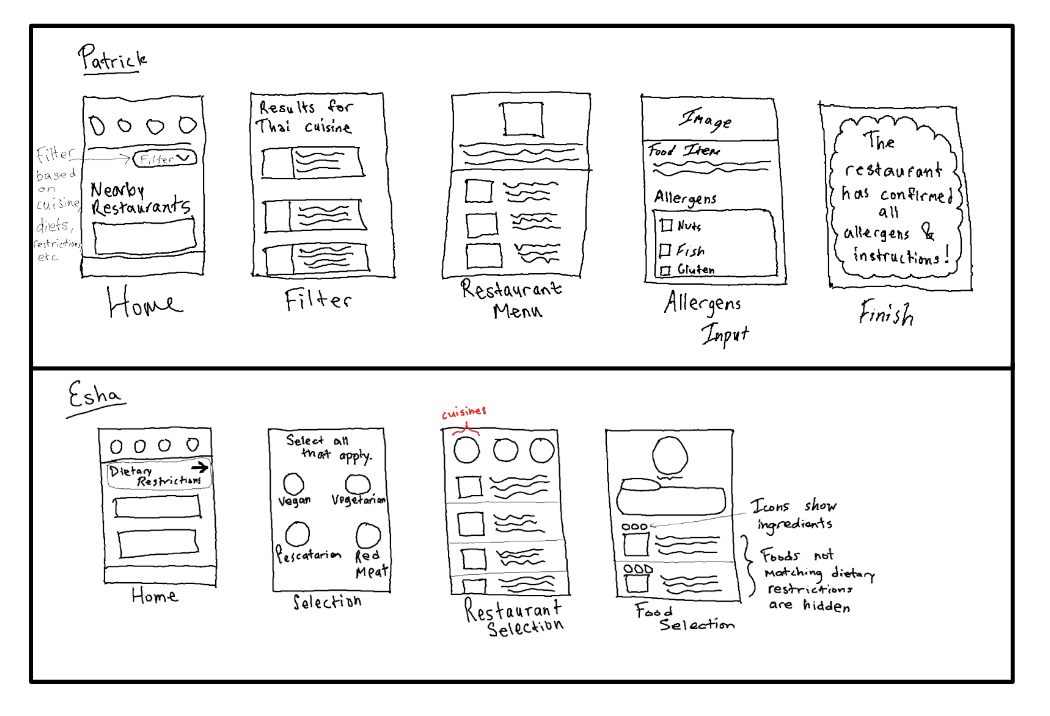 Patrick
Filter
based
on
cuisine,
diets,
restrictions,
etc
Filter
Nearby
Restaurants
Home
Results for
Thai cuisine
Filter
Restaurant
Menu
Image
Food Item
Allergens
Nuts
Fish
Gluten
Allergens
Input
The
restaurant
has confirmed
all
allergens &
instructions!
Finish
Esha
Dietary
Restrictions
Home
Select all
that apply.
Vegan
Vegetarian
Pescatarian
Red
Meat
Selection
cuisines
Restaurant
Selection
Icons show
ingredients
Foods not
matching dietary
restrictions
are hidden
Food
Selection